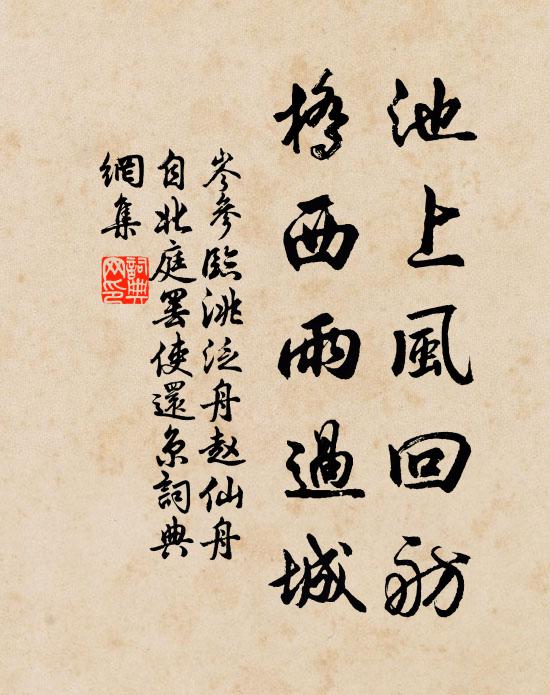 池上風回舫
橋西雨過城
岑參臨洮泛舟趙仙舟
自北庭罷使還京詞典
網集
詞典
网印